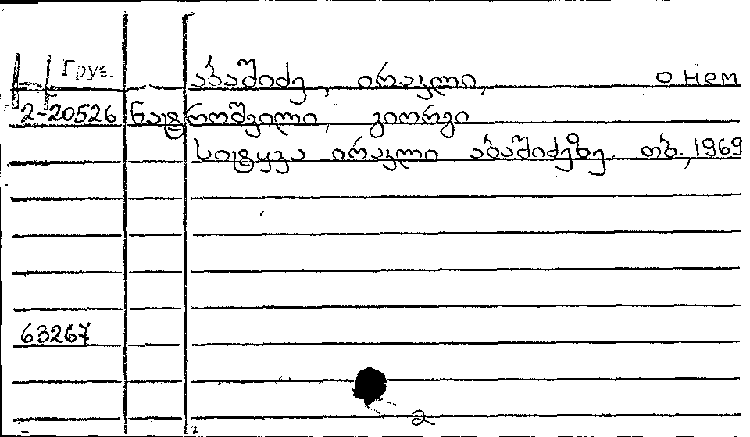 Груз. აბაშიძე, ირაკლი, о нем
2-20526 ნატროშვილი, გიორგი
სიტყვა ირაკლი აბაშიძეზე. თბ., 1969
63267
2